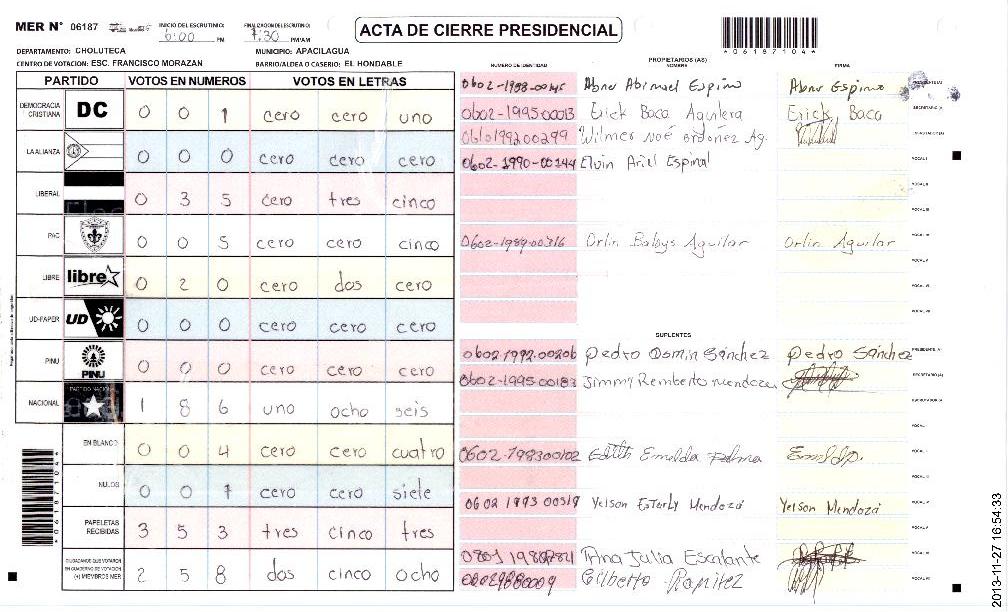 MER N° 06187 INICIO DEL ESCRUTINIO: 6:00 PM FINALIZACION DEL ESCRUTINIO: 7:30 PM/AM
ACTA DE CIERRE PRESIDENCIAL
*06187104*
DEPARTAMENTO: CHOLUTECA MUNICIPIO: APACILAGUA
CENTRO DE VOTACION: ESC. FRANCISCO MORAZAN BARRIO/ALDEA O CASERIO: EL HONDABLE
PARTIDO VOTOS EN NUMEROS VOTOS EN LETRAS
DEMOCRACIA CRISTIANA DC 0 0 1 cero cero uno
LA ALIANZA 0 0 0 cero cero cero
LIBERAL 0 3 5 cero tres cinco
PAC 0 0 5 cero cero cinco
LIBRE libre 0 2 0 cero dos cero
UD-FAPER UD 0 0 0 cero cero cero
PINU PINU 0 0 0 cero cero cero
NACIONAL PARTIDO NACIONAL 1 8 6 uno ocho seis
EN BLANCO 0 0 4 cero cero cuatro
NULOS 0 0 7 cero cero siete
PAPELETAS RECIBIDAS 3 5 3 tres cinco tres
CIUDADANOS QUE VOTARON EN CUADERNO DE VOTACION (+) MIEMBROS MER 2 5 8 dos cinco ocho
*06187104*
NUMERO DE IDENTIDAD PROPIETARIOS (AS) NOMBRE FIRMA
0602-1988-00145 Abner Abimael Espino Abner Espino PRESIDENTE(A)
0602-1995-00013 Erick Baca Aguilera Erick Baca SECRETARIO (A)
0610199200299 Wilmer Noé ordoñez Ag. ESCRUTADOR(A)
0602-1990-00144 Elvin Ariel Espinal VOCAL I
VOCAL II
VOCAL III
0602-1989-00316 Orlin Aguilar Orlin Aguilar VOCAL IV
VOCAL V
VOCAL VI
VOCAL VII
SUPLENTES
0602-1992-00206 Pedro Domin Sánchez Pedro Sánchez PRESIDENTE (A)
0602-1995-00183 Jimmy Remberto Mendoza SECRETARIO (A)
ESCRUTADOR (A)
VOCAL I
0602-198300102 Edith Emelda Palma VOCAL II
VOCAL III
0602 1993 00319 Yelson Esterly Mendoza Yelson Mendoza VOCAL IV
VOCAL V
Ana Julia Escalante VOCAL VI
Gilberto VOCAL VII
2013-11-27 16:54:33